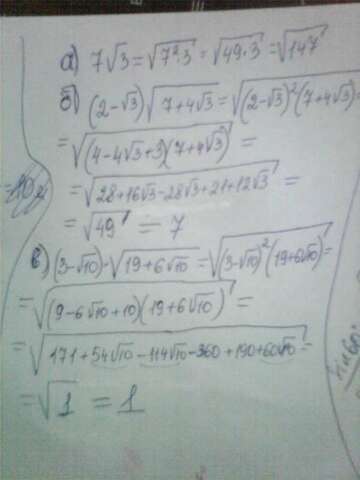 а) 7√3 = √(7²·3) = √(49·3) = √147
б) (2-√3)√(7+4√3) = √((2-√3)²(7+4√3)) =
= √((4-4√3+3)(7+4√3)) =
= √(28+16√3-28√3+21+12√3) =
= √49 = 7
в) (3-√10)·√(19+6√10) = √((3-√10)²(19+6√10)) =
= √((9-6√10+10)(19+6√10)) =
= √(171+54√10-114√10-360+190+60√10) =
= √1 = 1